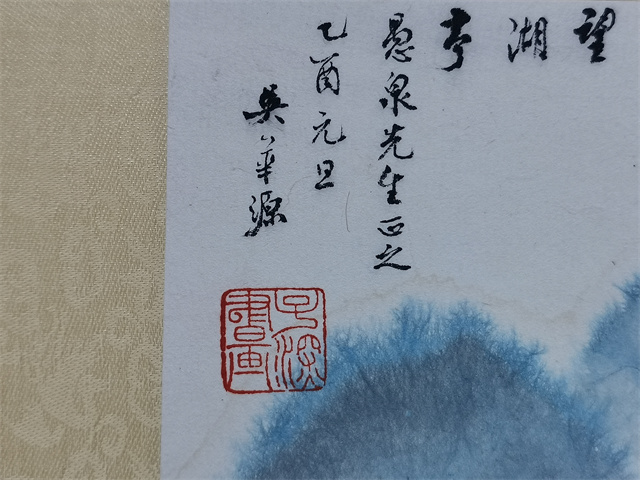 望湖亭
愚泉先生正之
乙酉元旦
吴华源
子深書画